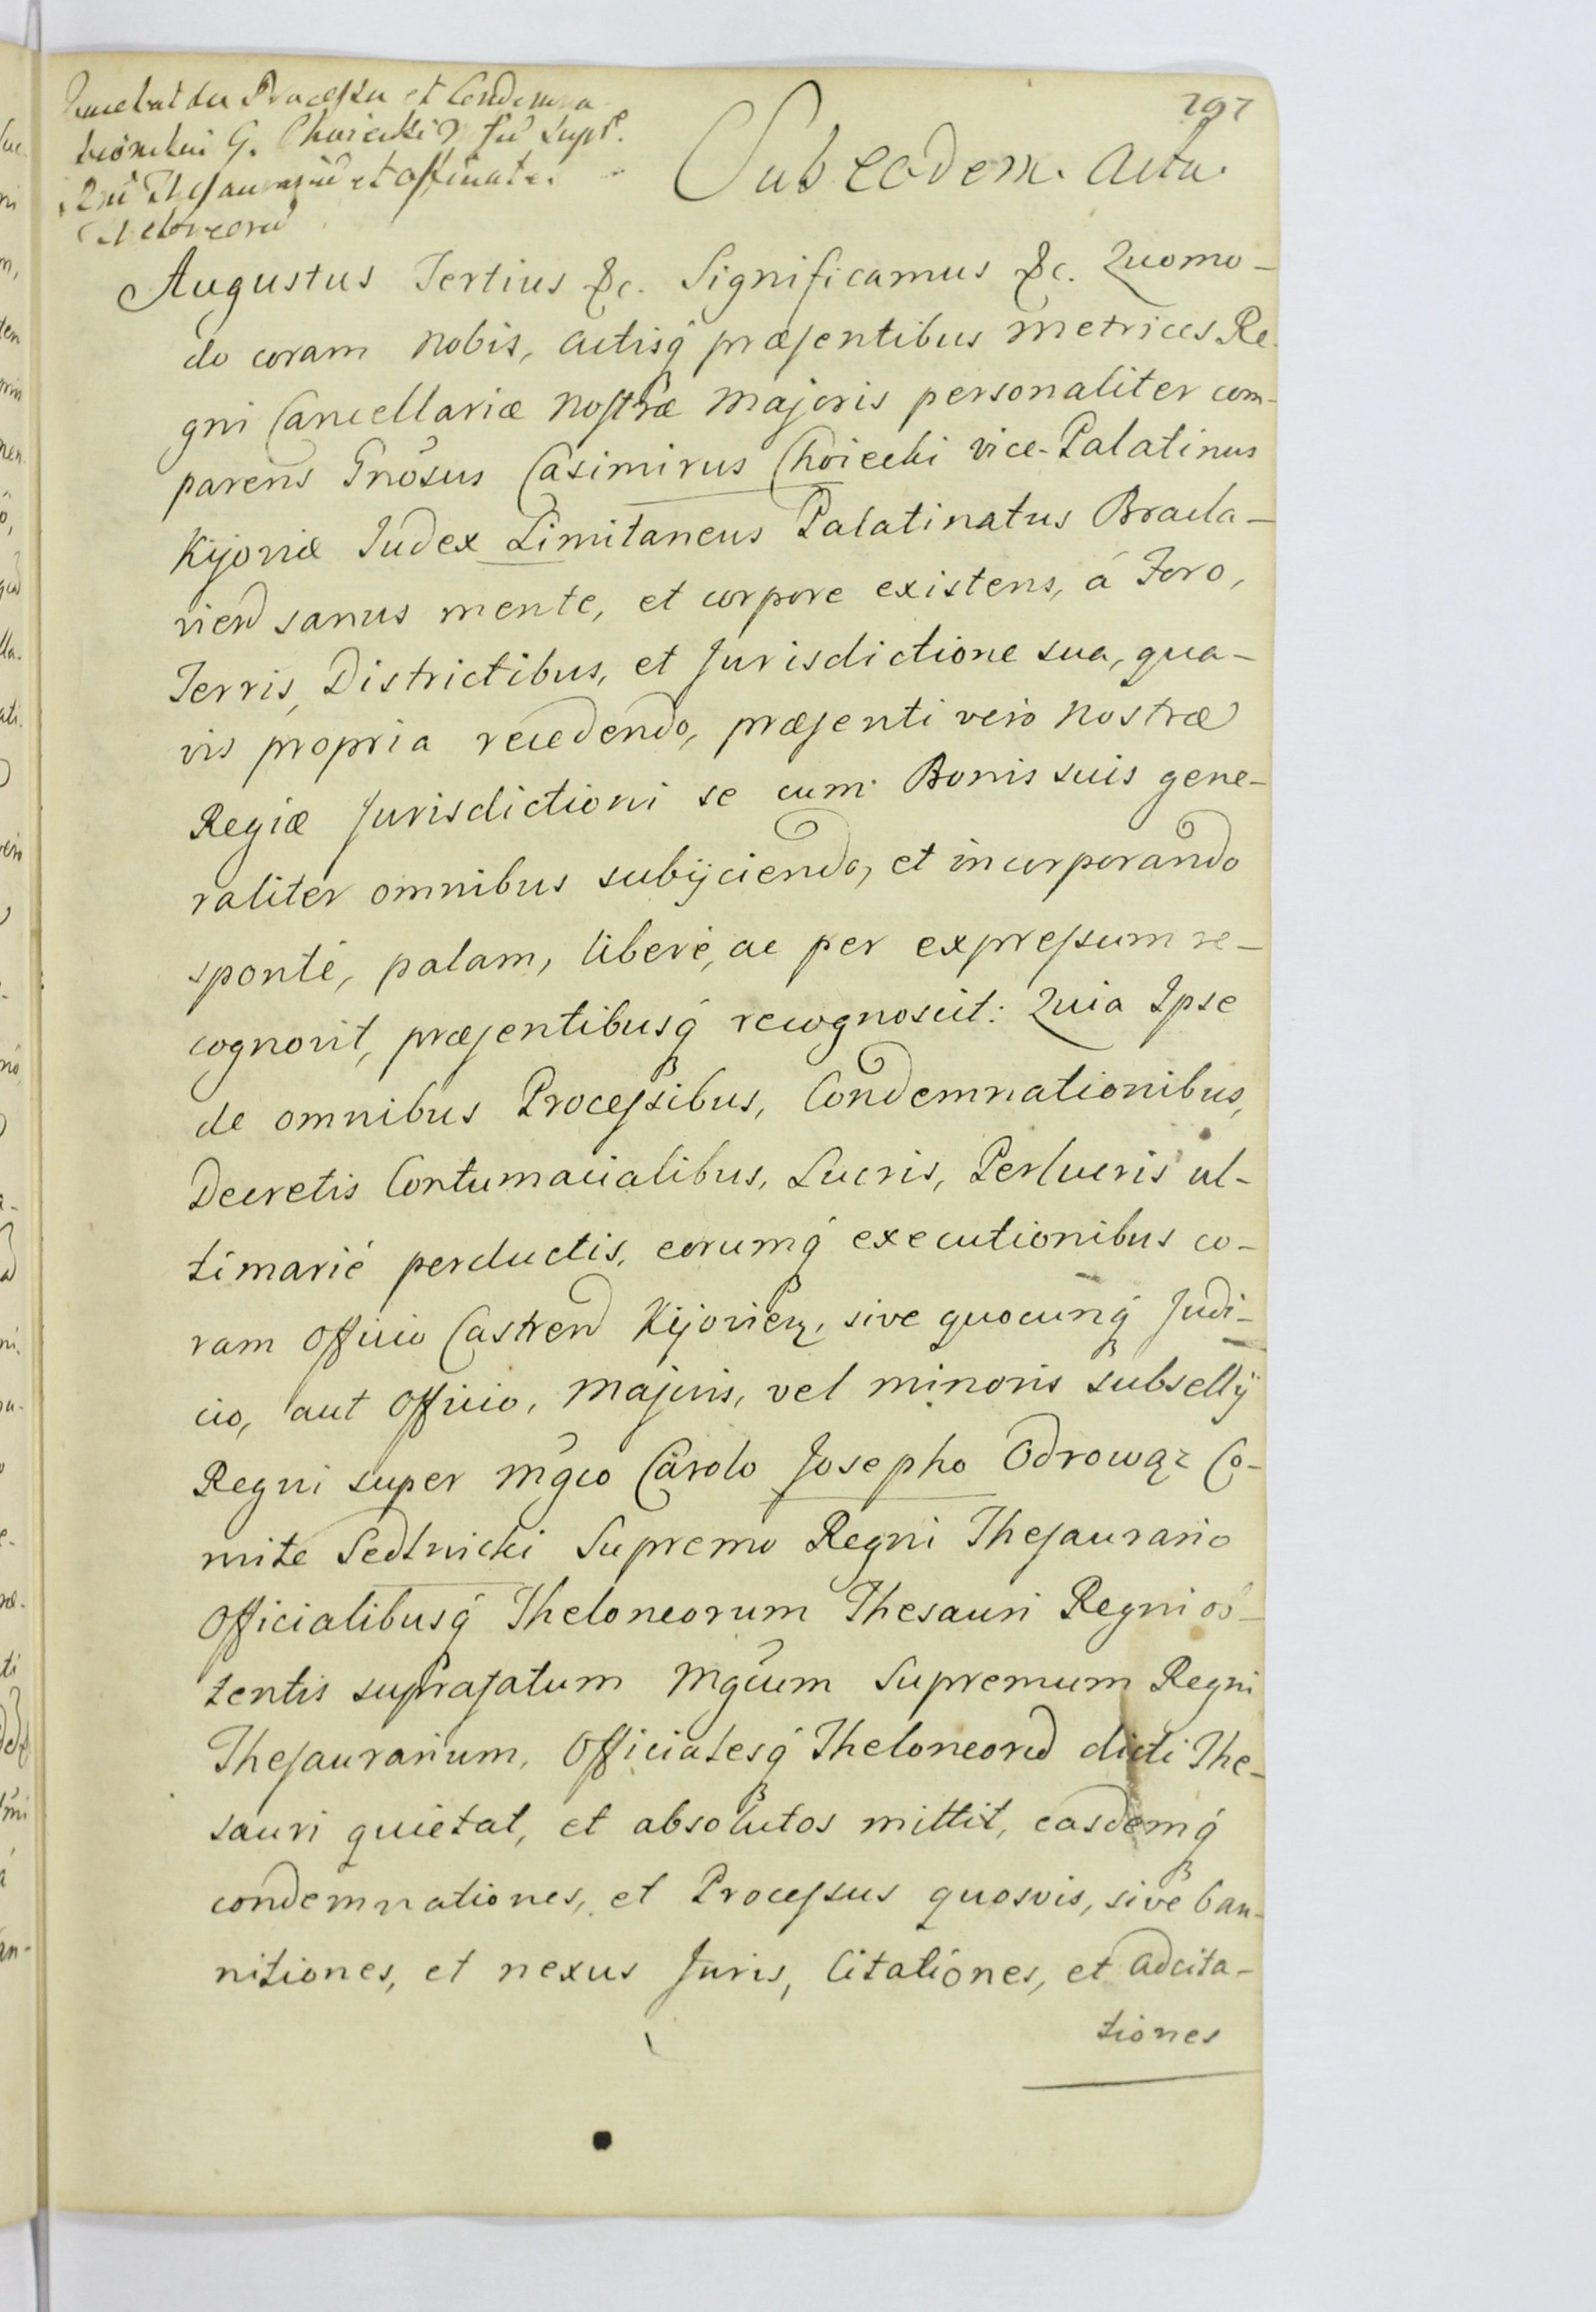 et Condemna
G. Choiecki
Thesaurariu et
197
Sub eodem. Actu.
Augustus Tertius &c. Significamus &c. Quomo-
do coram nobis, actisq́ præsentibus metrices Re-
gni Cancellariæ Nostræ Majoris personaliter com-
parens Gnõsus Casimirus Choiecki vice-Palatinus
Kijoviæ Judex Limitaneus Palatinatus Bracla-
vien sanus mente, et corpore existens, á Foro,
Terris, Districtibus, et Jurisdictione sua, qua-
vis propria recedendo, præsenti vero Nostræ
Regiæ Jurisdictioni se cum Bonis suis gene-
raliter omnibus subijciendo, et incorporando
sponté, palam, liberé, ac per expressum re-
cognovit, præsentibusq́ recognoscit: Quia Ipse
de omnibus Processibus, Condemnationibus,
Decretis Contumacialibus, Lucris, Perlucris ul-
timarié perductis, eorumq́ executionibus co-
ram Officio Castren Kijovien, sive quocunq́ Judi-
cio, aut Officio, Majoris, vel minoris subsellij
Regni super Mgco Carolo Josepho Odrowąz Co-
mite Sedlnicki Supremo Regni Thesaurario
Officialibusq́ Theloneorum Thesauri Regni ob-
tentis suprafatum Mgcum Supremum Regni
Thesaurarium, Officialesq́ Theloneor dicti The-
sauri quietat, et absolutos mittit, easdemq́
condemnationes, et Processus quosvis, sive ban-
nitiones, et nexus Juris, Citationes, et adcita-
tiones